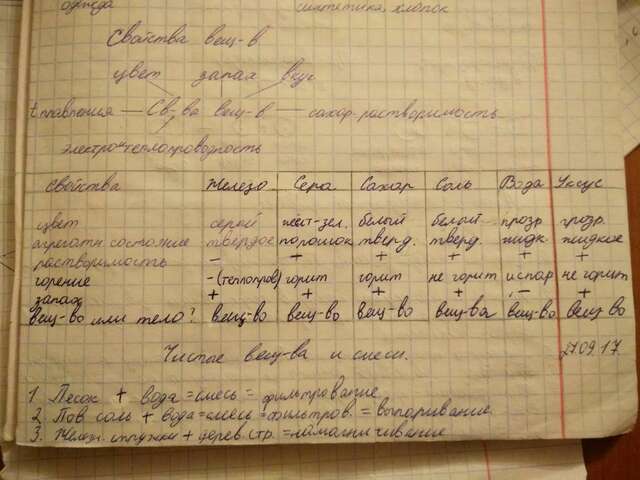 одежда синтетика, хлопок
Свойства вещ-в.
цвет запах вкус
t плавления — Св-ва вещ-в — сахар-растворимость
электро и теплопроводность
свойства Железо Сера Сахар Соль Вода Уксус
цвет серый желт-зел. белый белый прозр. прозр.
агрегатн. состояние твердое порошок тверд. тверд. жидк. жидкое
растворимость – – + + +
горение –(теплопров) горит горит не горит испар не горит
запах + + + + – +
вещ-во или тело? вещ-во вещ-во вещ-во вещ-во вещ-во вещ-во
Чистые вещ-ва и смеси. 27.09.17.
1. Песок + вода = смесь = фильтрование
2. Пов. соль + вода = смесь = фильтров. = выпаривание
3. Железн. стружки + дерев. стр. = намагничивание